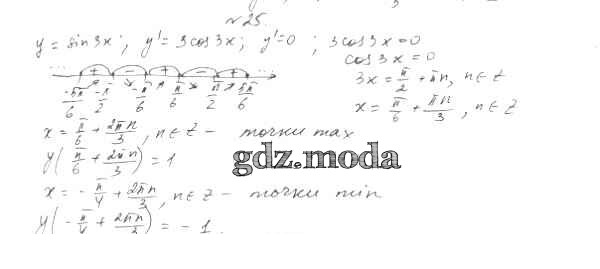 №25.
y = sin3x; y' = 3cos3x; y'=0; 3cos3x=0
cos3x=0
... + - + - + ...
3x = π/2 + πn, n∈Z
-5π/6 -π/2 -π/6 π/6 π/2 5π/6
x = π/6 + πn/3, n∈Z
x = π/6 + 2πn/3, n∈Z – точки max
y(π/6 + 2πn/3) = 1
gdz.moda
x = -π/4 + 2πn/3, n∈Z – точки min
y(-π/4 + 2πn/2) = -1.